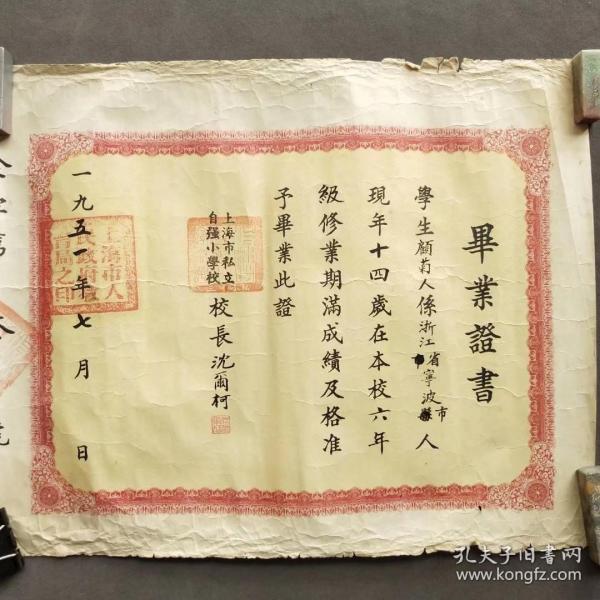 畢業證書
學生顧菊人係浙江省寧波市縣人
現年十四歲在本校六年
級修業期滿成績及格准
予畢業此證
上海市私立
自强小學校
校長沈爾柯
一九五一年七月 日
上海市人
民政府教
育局之印
字第
號
孔夫子旧书网
www.kongfz.com